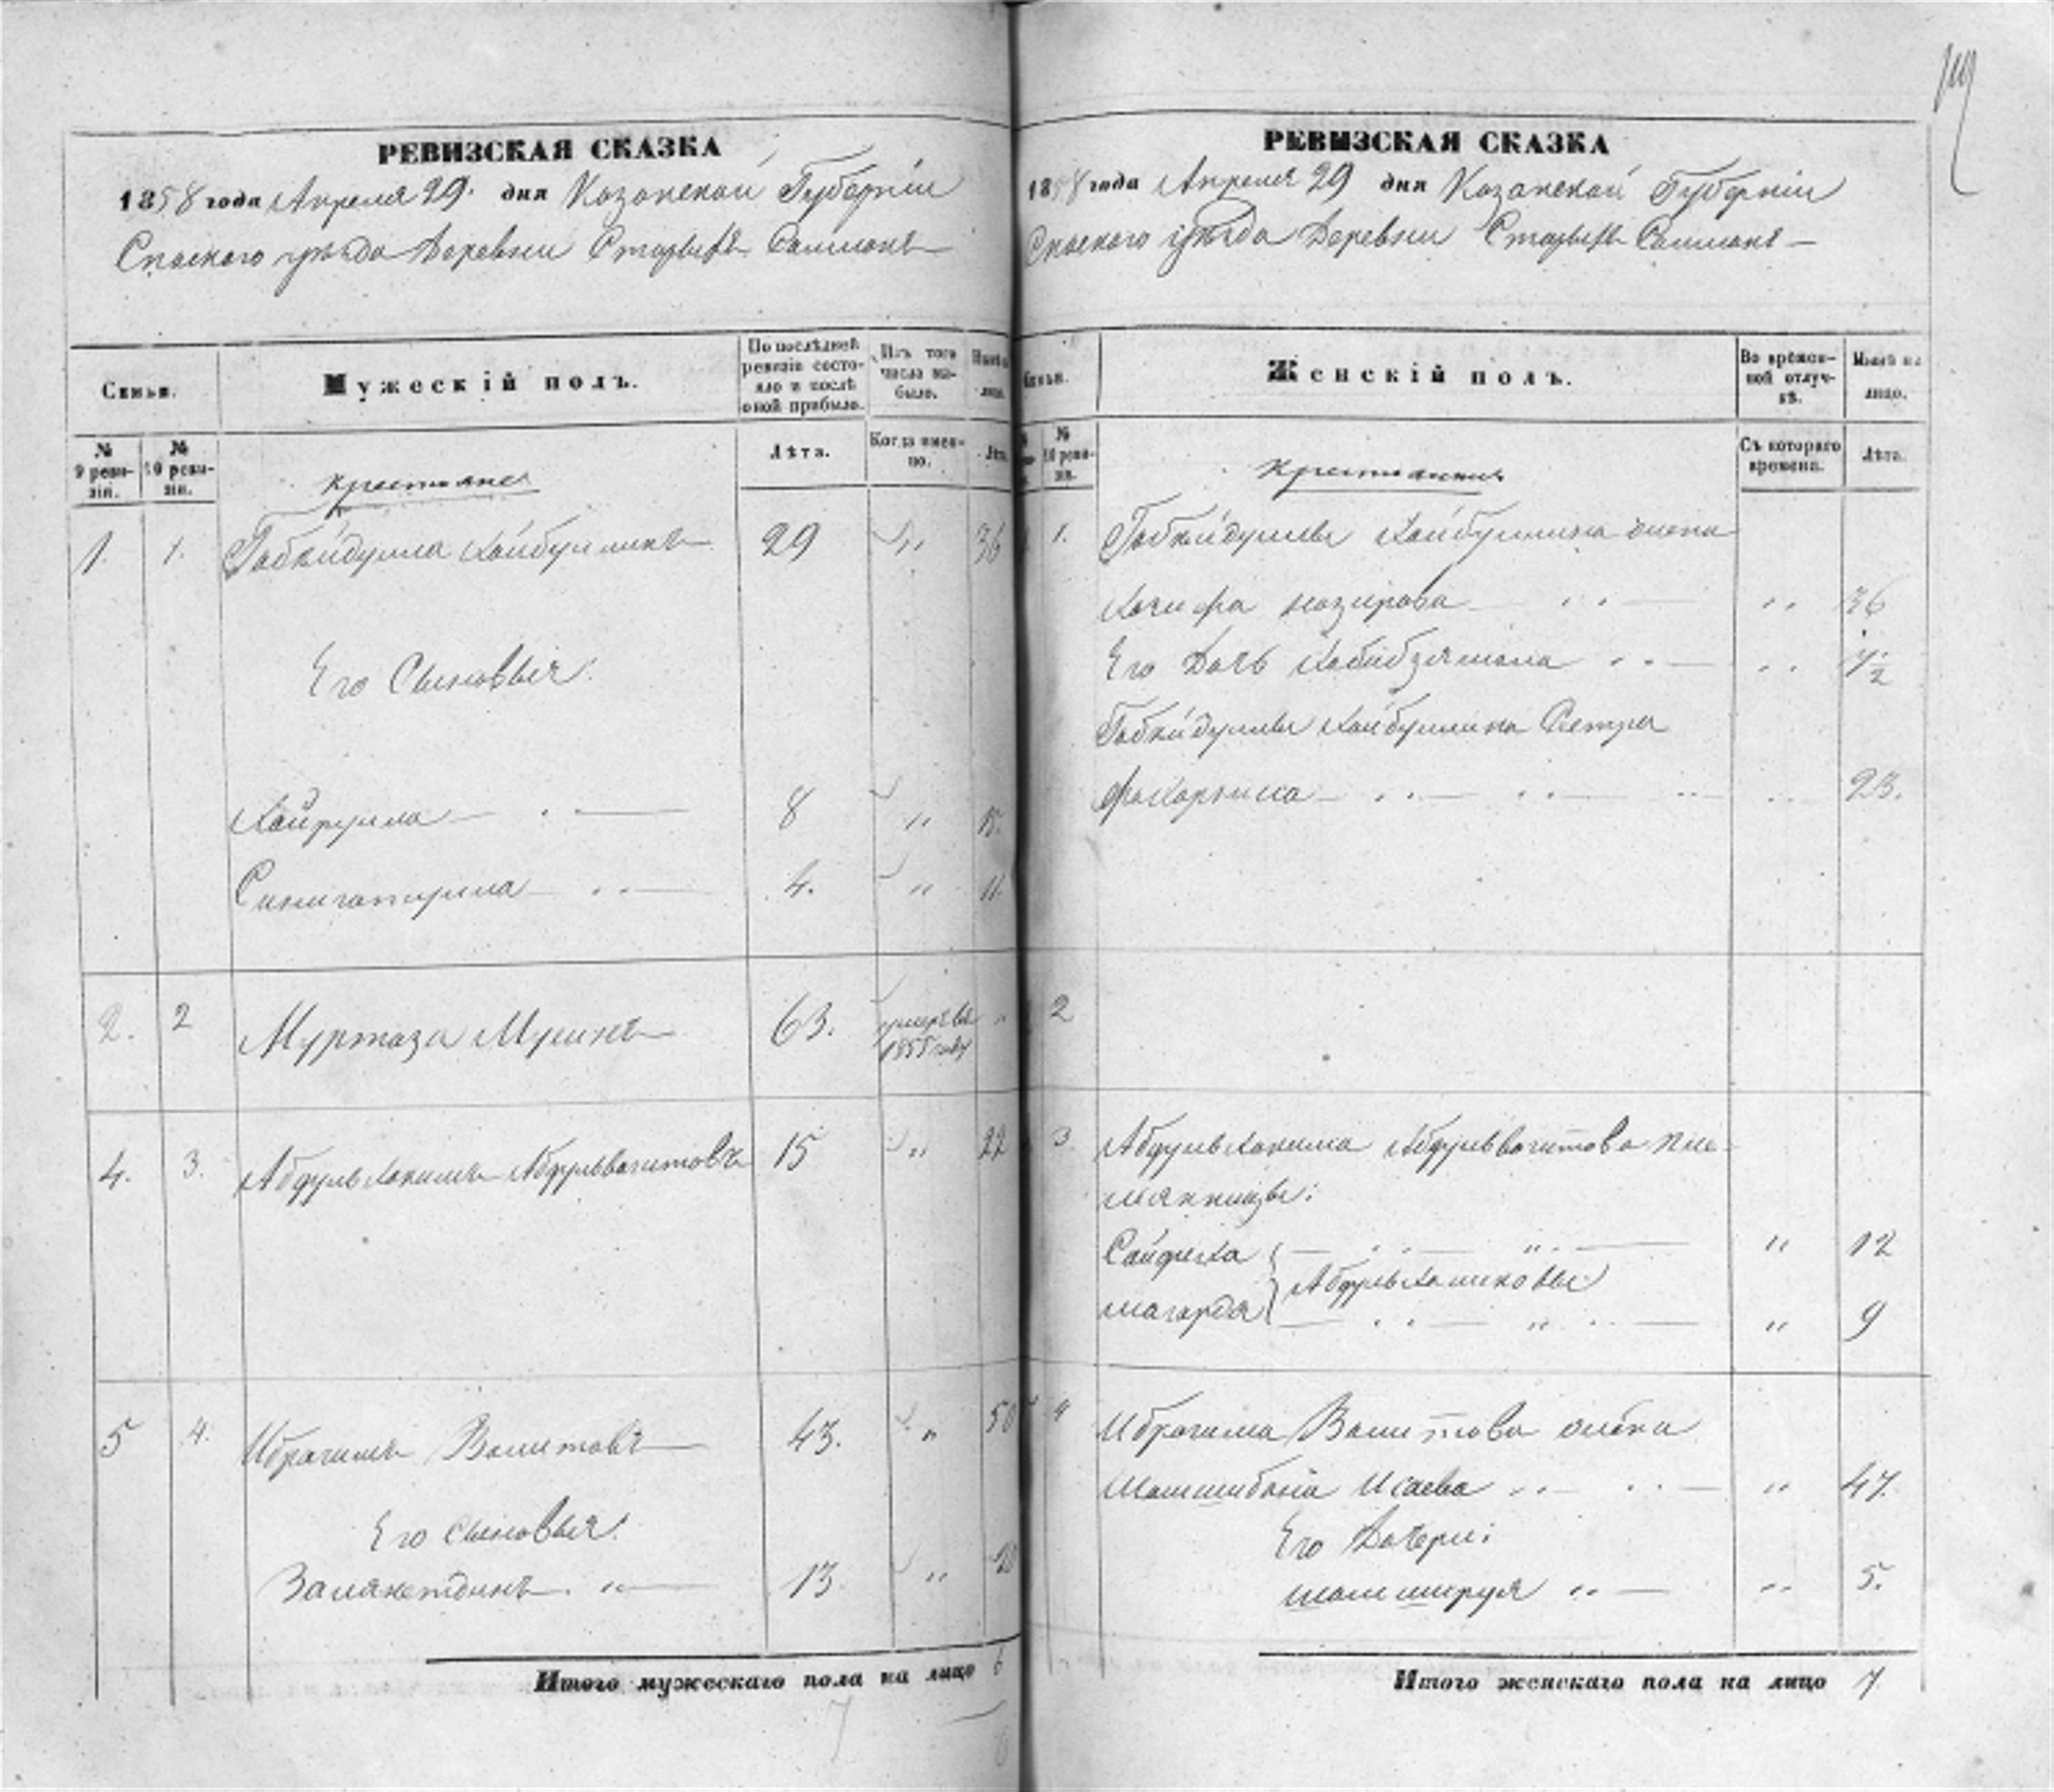 РЕВИЗСКАЯ СКАЗКА
1858 года Апреля 29. дня Казанской Губерніи
Спаского уѣзда Деревни Старыхъ Салманъ
Семьи.
Мужескій полъ.
По послѣдней ревизіи состояло и послѣ оной прибыло.
Изъ того числа выбыло.
Нынѣ на лицо.
№ 9 ревизіи.
№ 10 ревизіи.
Лѣта.
Когда именно.
Лѣта.
крестьяне
1. 1. Габбайдулла Хайбуллинъ 29 " 36
Его Сыновья:
Хайрулла 8 " 15.
4. " 11.
2. 2 Муртаза Мусинъ 63. умеръ въ 1855 году "
4. 3. Абдулвагитовъ 15 " 22
5 4. Ибрагимъ Вагитовъ 43. " 50
Его сыновья:
Залялетдинъ " 13 " 20
Итого мужескаго пола на лицо 6
7
РЕВИЗСКАЯ СКАЗКА
1858 года Апреля 29 дня Казанской Губерніи
Спаского уѣзда Деревни Старыхъ Салманъ
Семьи.
Женскій полъ.
Во временной отлучкѣ.
Нынѣ на лицо.
№ 10 ревизіи.
Съ котораго времени.
Лѣта.
крестьянки
1. Габбайдуллы Хайбуллина жена
назирова " 36
Его Дочь Хабибзямала " 1/2
Габбайдуллы Хайбуллина Сестра
" 23.
2
3. Абдулвагитова пле-
мянницы:
Сайфиха " 12
Магардя " 9
4 Ибрагима Вагитова жена
Исаева " 47.
Его Дочери:
" 5.
Итого женскаго пола на лицо 7.